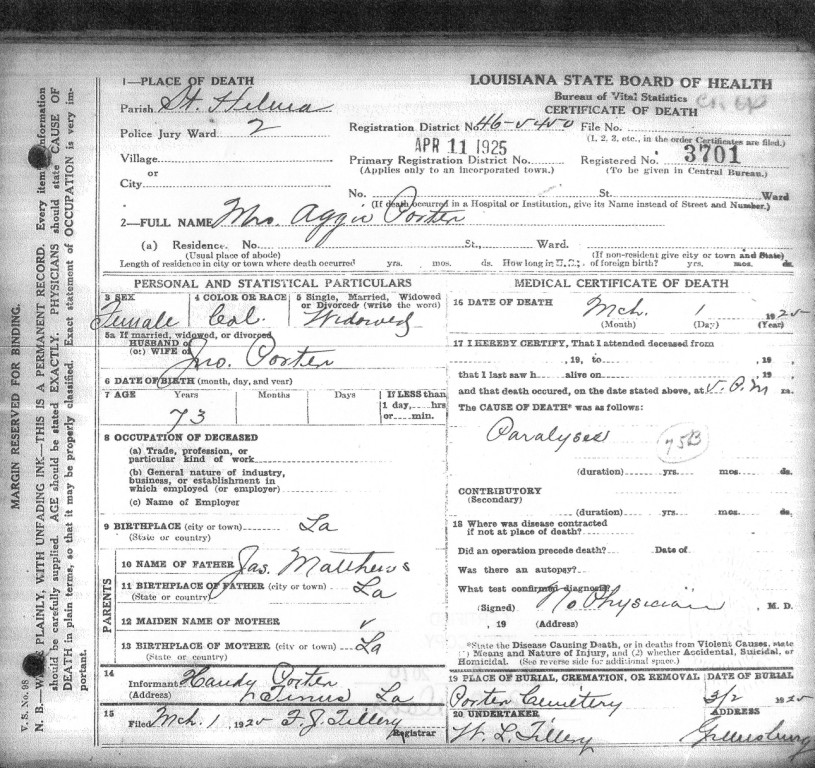 1—PLACE OF DEATH
Parish St. Helena
Police Jury Ward 2
Village
or
City
LOUISIANA STATE BOARD OF HEALTH
Bureau of Vital Statistics
CERTIFICATE OF DEATH
Registration District No. 46-5450 File No.
(1, 2, 3, etc., in the order Certificates are filed.)
APR 11 1925
Primary Registration District No. Registered No. 3701
(Applies only to an incorporated town.) (To be given in Central Bureau.)
No. St. Ward
(If death occurred in a Hospital or Institution, give its Name instead of Street and Number.)
2—FULL NAME Mrs. Aggie Porter
(a) Residence. No. St., Ward.
(Usual place of abode) (If non-resident give city or town and State)
Length of residence in city or town where death occurred yrs. mos. ds. How long in U.S., of foreign birth? yrs. mos. ds.
PERSONAL AND STATISTICAL PARTICULARS
3 SEX 4 COLOR OR RACE 5 Single, Married, Widowed
or Divorced (write the word)
Female Col. Widowed
5a If married, widowed, or divorced
HUSBAND of
(or) WIFE of Jno. Porter
6 DATE OF BIRTH (month, day, and year)
7 AGE Years Months Days If LESS than
1 day, hrs
or min.
73
8 OCCUPATION OF DECEASED
(a) Trade, profession, or
particular kind of work
(b) General nature of industry,
business, or establishment in
which employed (or employer)
(c) Name of Employer
9 BIRTHPLACE (city or town) La
(State or country)
PARENTS
10 NAME OF FATHER Jas. Matthews
11 BIRTHPLACE OF FATHER (city or town)
(State or country) La
12 MAIDEN NAME OF MOTHER ✓
13 BIRTHPLACE OF MOTHER (city or town) La
(State or country)
14
Informant Handy Porter
(Address) La
15
Filed Mch. 1, 1925 F. J. Tillery
Registrar
MEDICAL CERTIFICATE OF DEATH
16 DATE OF DEATH Mch. 1 1925
(Month) (Day) (Year)
17 I HEREBY CERTIFY, That I attended deceased from
, 19 , to , 19
that I last saw h alive on , 19
and that death occured, on the date stated above, at 5. P.M m.
The CAUSE OF DEATH* was as follows:
Paralyses 75B
(duration) yrs. mos. ds.
CONTRIBUTORY
(Secondary)
(duration) yrs. mos. ds.
18 Where was disease contracted
if not at place of death?
Did an operation precede death? Date of
Was there an autopsy?
What test confirmed diagnosis?
(Signed) No Physician M. D.
, 19 (Address)
*State the Disease Causing Death, or in deaths from Violent Causes, state
(1) Means and Nature of Injury, and (2) whether Accidental, Suicidal, or
Homicidal. (See reverse side for additional space.)
19 PLACE OF BURIAL, CREMATION, OR REMOVAL DATE OF BURIAL
Porter Cemetery 3/2 1925
20 UNDERTAKER ADDRESS
W. L. Tillery Greensburg
V. S. No. 98
MARGIN RESERVED FOR BINDING.
N. B.—WRITE PLAINLY, WITH UNFADING INK—THIS IS A PERMANENT RECORD. Every item of information
should be carefully supplied. AGE should be stated EXACTLY. PHYSICIANS should state CAUSE OF
DEATH in plain terms, so that it may be properly classified. Exact statement of OCCUPATION is very im-
portant.